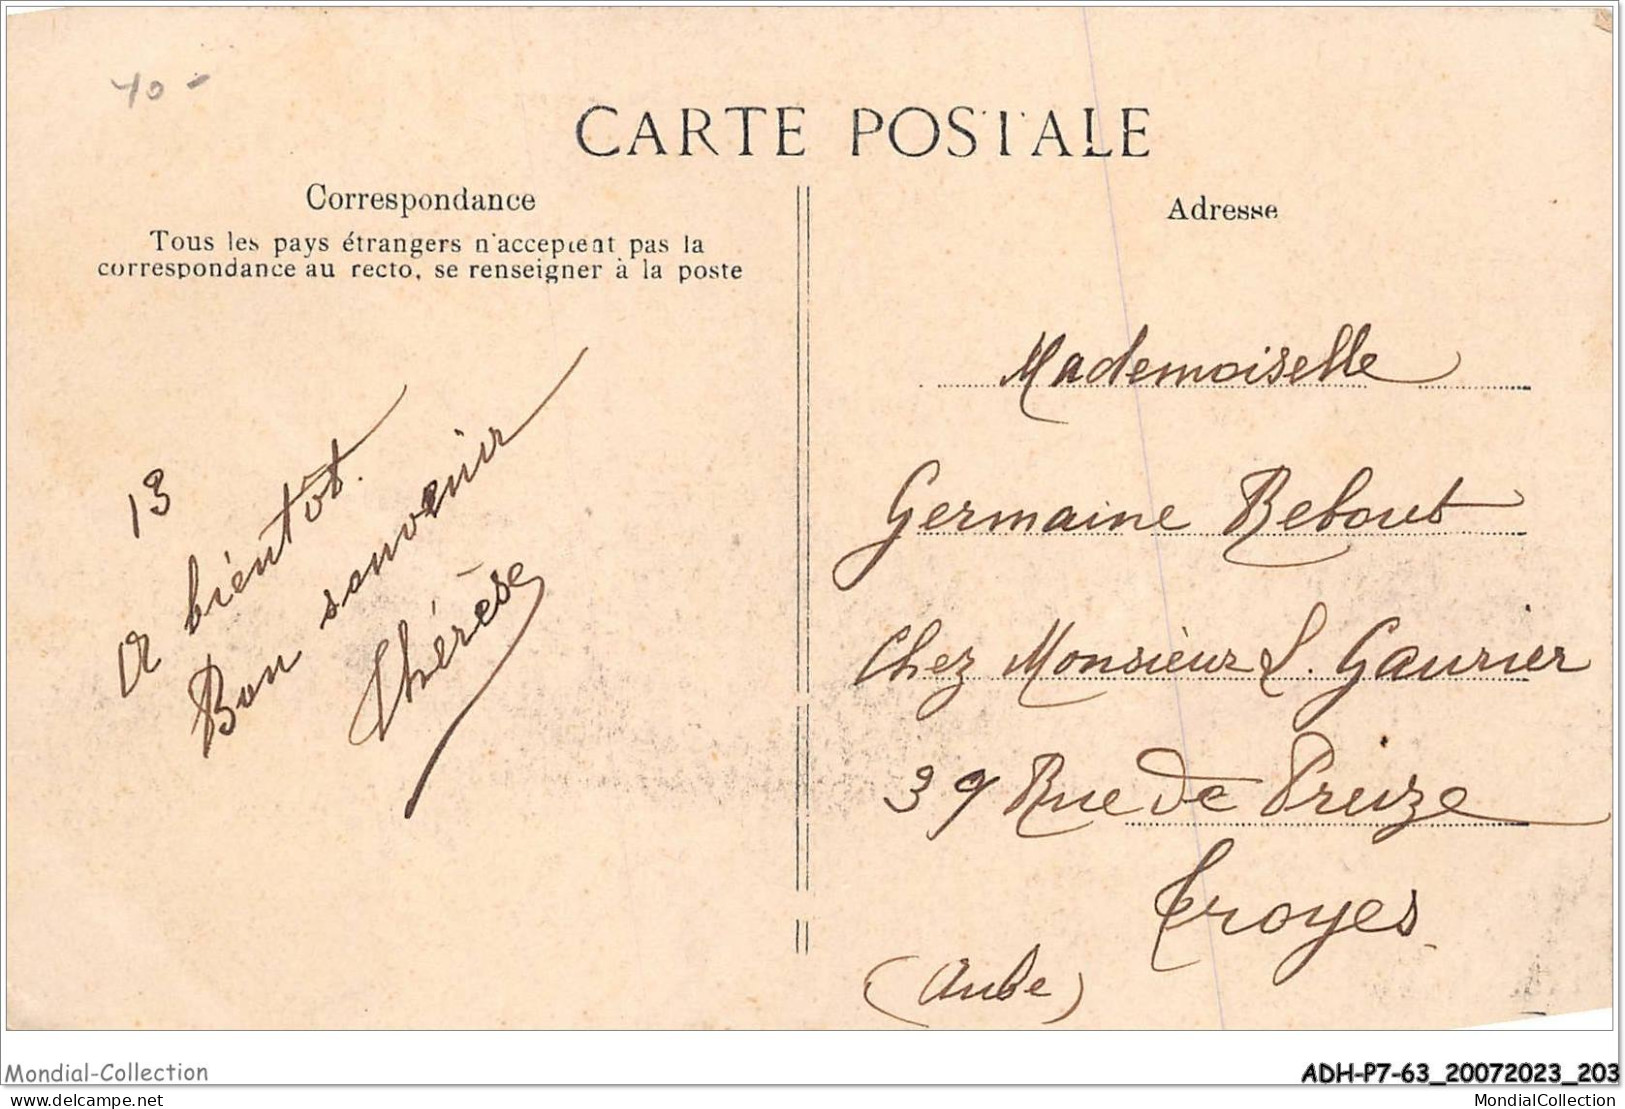 40-
CARTE POSTALE
Correspondance
Tous les pays étrangers n'acceptent pas la
correspondance au recto, se renseigner à la poste
13
A bientôt.
Bon souvenir
Thérèse
Adresse
Mademoiselle
Germaine Rebout
Chez Monsieur L. Gaurier
39 Rue de Preize
Troyes
(Aube)
Mondial-Collection
ADH-P7-63_20072023_203
MondialCollection
MondialCollection